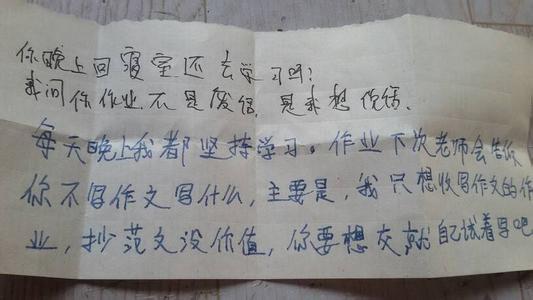 你晚上回寝室还去学习吗?
我问你作业不是废话,是我想你话.
每天晚上我都坚持学习。作业下次老师会告诉
你不写作文写什么,主要是,我只想收写作文的作
业,抄范文没价值,你要想交就自己试着写吧